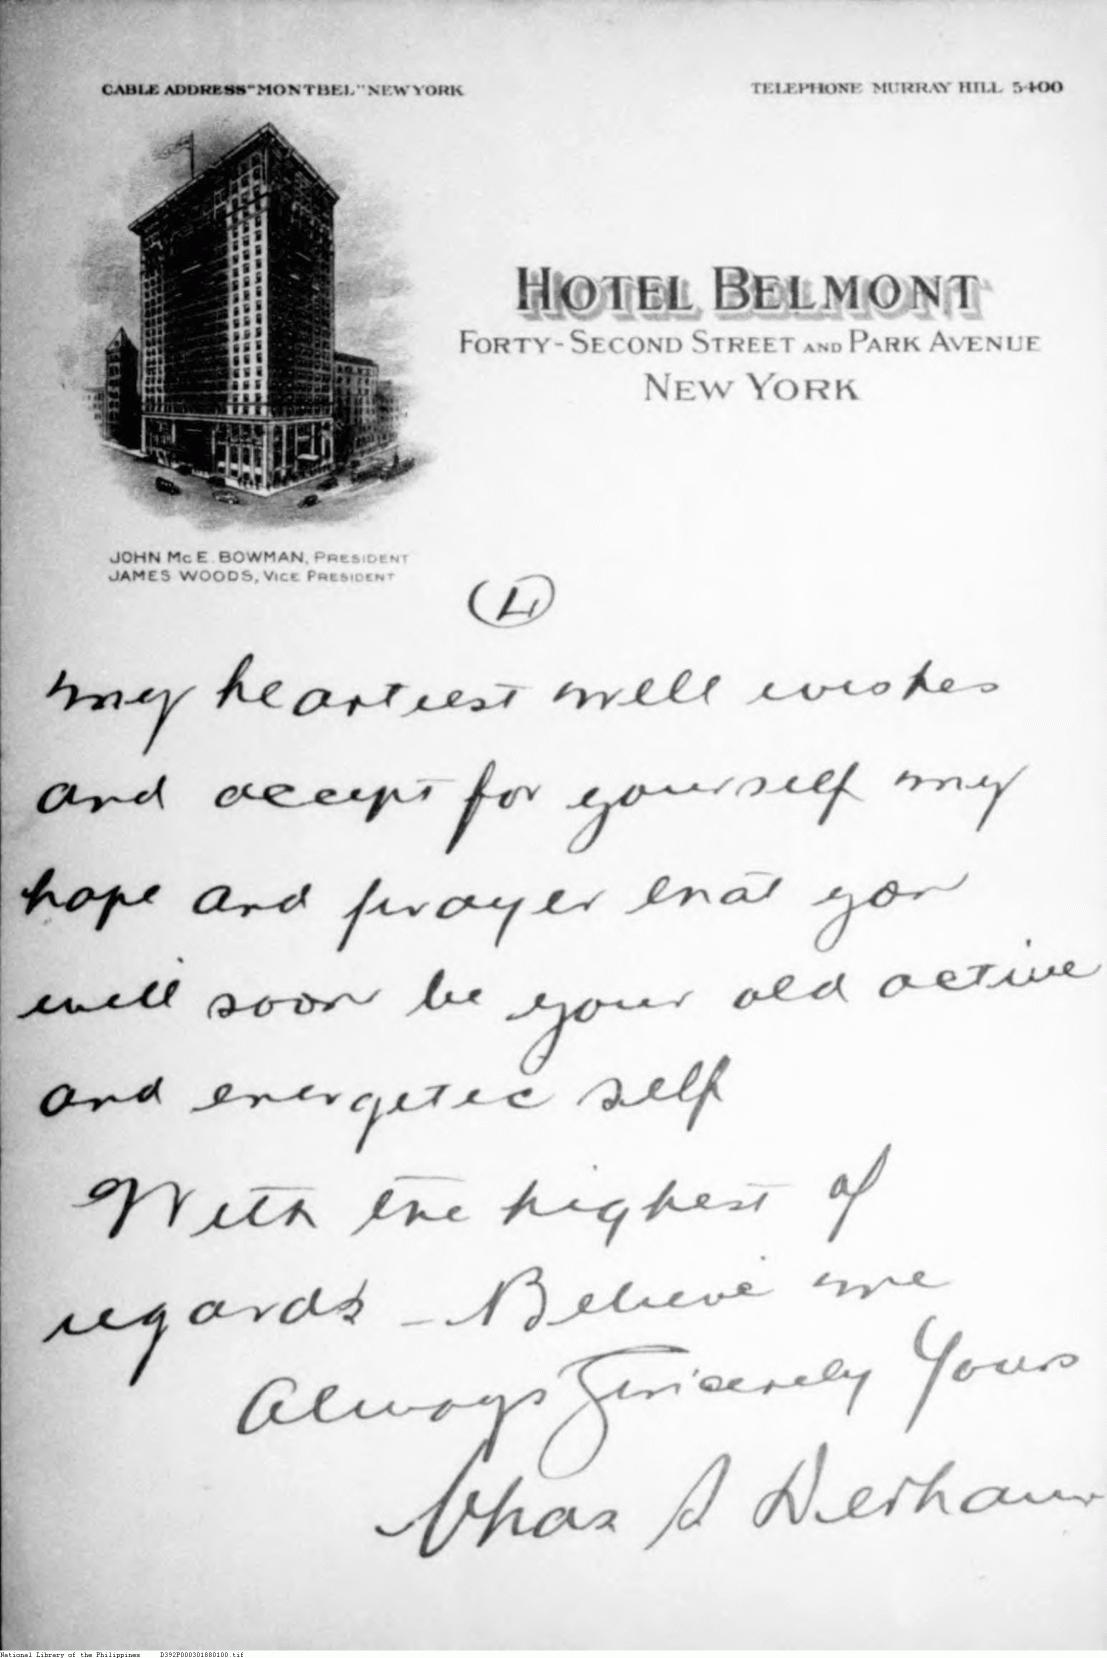 CABLE ADDRESS "MONTBEL" NEW YORK
TELEPHONE MURRAY HILL 5400
HOTEL BELMONT
FORTY-SECOND STREET AND PARK AVENUE
NEW YORK
JOHN McE. BOWMAN, PRESIDENT
JAMES WOODS, VICE PRESIDENT
(4)
my heartiest well wishes
and accept for yourself my
hope and prayer that you
will soon be your old active
and energetic self
With the highest of
regards - Believe me
Always Sincerely Yours
Chas S
National Library of the Philippines D392P000301880100.tif